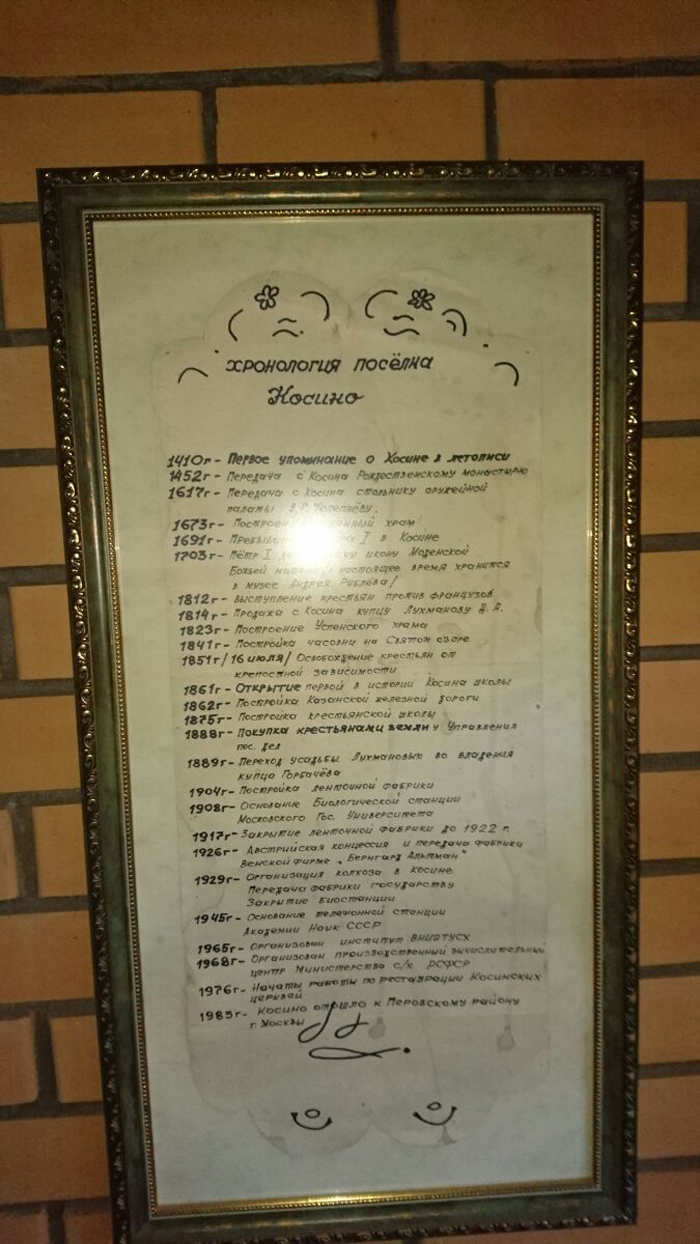 хронология посёлка
Косино
1410г - Первое упоминание о Косине в летописи
1452г - Передача с Косина Рождественскому монастырю
1617г - Передача с Косина стольнику оружейной
палаты
1673г - Построен храм
1691г - I в Косине
1703г - Пётр I икону Моденской
Божьей настоящее время хранится
в музее Андрея Рублёва/
1812г - Выступление крестьян против французов
1814г - Продажа с Косина купцу Лухманову Д.А.
1823г - Построение Успенского храма
1841г - Постройка часовни на Святом озере
1851г /16 июля/ Освобождение крестьян от
крепостной зависимости
1861г - Открытие первой в истории Косина школы
1862г - Постройка Казанской железной дороги
1875г - Постройка крестьянской школы
1888г - Покупка крестьянами земли у Управления
пос. дел
1889г - Переход усадьбы Лухмановых во владения
купца Горбачёва
1904г - Постройка ленточной фабрики
1908г - Основание Биологической станции
Московского Гос. Университета
1917г - Закрытие ленточной фабрики до 1922 г.
1926г - Австрийская концессия и передача фабрики
Венской фирме „Бернгард Альтман"
1929г - Организация колхоза в Косине
Передача фабрики государству
Закрытие биостанции
1945г - Основание телефонной станции
Академии Наук СССР
1965г - Организован институт ВНИИТУСХ
1968г - Организован производственный вычислительный
центр Министерства с/х РСФСР
1976г - Начаты работы по реставрации Косинских
церквей
1985г - Косино отошло к Перовскому району
г. Москвы